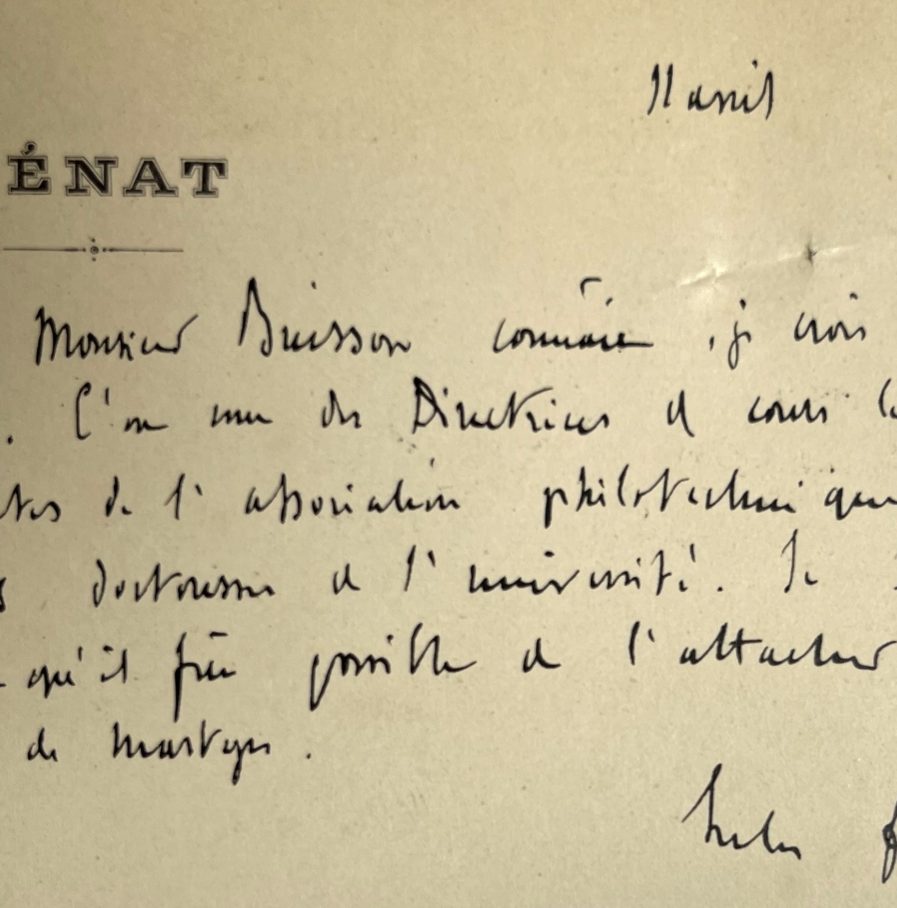 11 avril
ÉNAT
Monsieur Buisson connait, je crois
. C'est une des Directrices de cours
de l'association philotechnique
doctoresses de l'université. Je
qu'il fût possible de l'attacher
de martyrs.
Jules